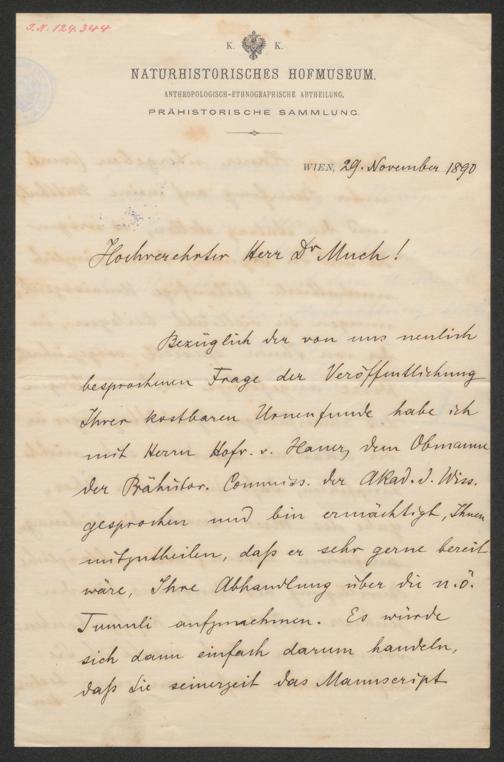 J.N. 124.344
K. K.
NATURHISTORISCHES HOFMUSEUM.
ANTHROPOLOGISCH-ETHNOGRAPHISCHE ABTHEILUNG,
PRÄHISTORISCHE SAMMLUNG.
WIEN, 29. November 1890
Hochverehrter Herr Dr Much!
Bezüglich der von uns neulich
besprochenen Frage der Veröffentlichung
Ihrer kostbaren Urnenfunde habe ich
mit Herrn Hofr. v. Hauer, dem Obmanne
der Prähistor. Commiss. der Akad. d. Wiss.
gesprochen und bin ermächtigt, Ihnen
mitzutheilen, daß er sehr gerne bereit
wäre, Ihre Abhandlung über die n.ö.
Tumuli aufzunehmen. Es würde
sich dann einfach darum handeln,
daß Sie seinerzeit das Manuscript